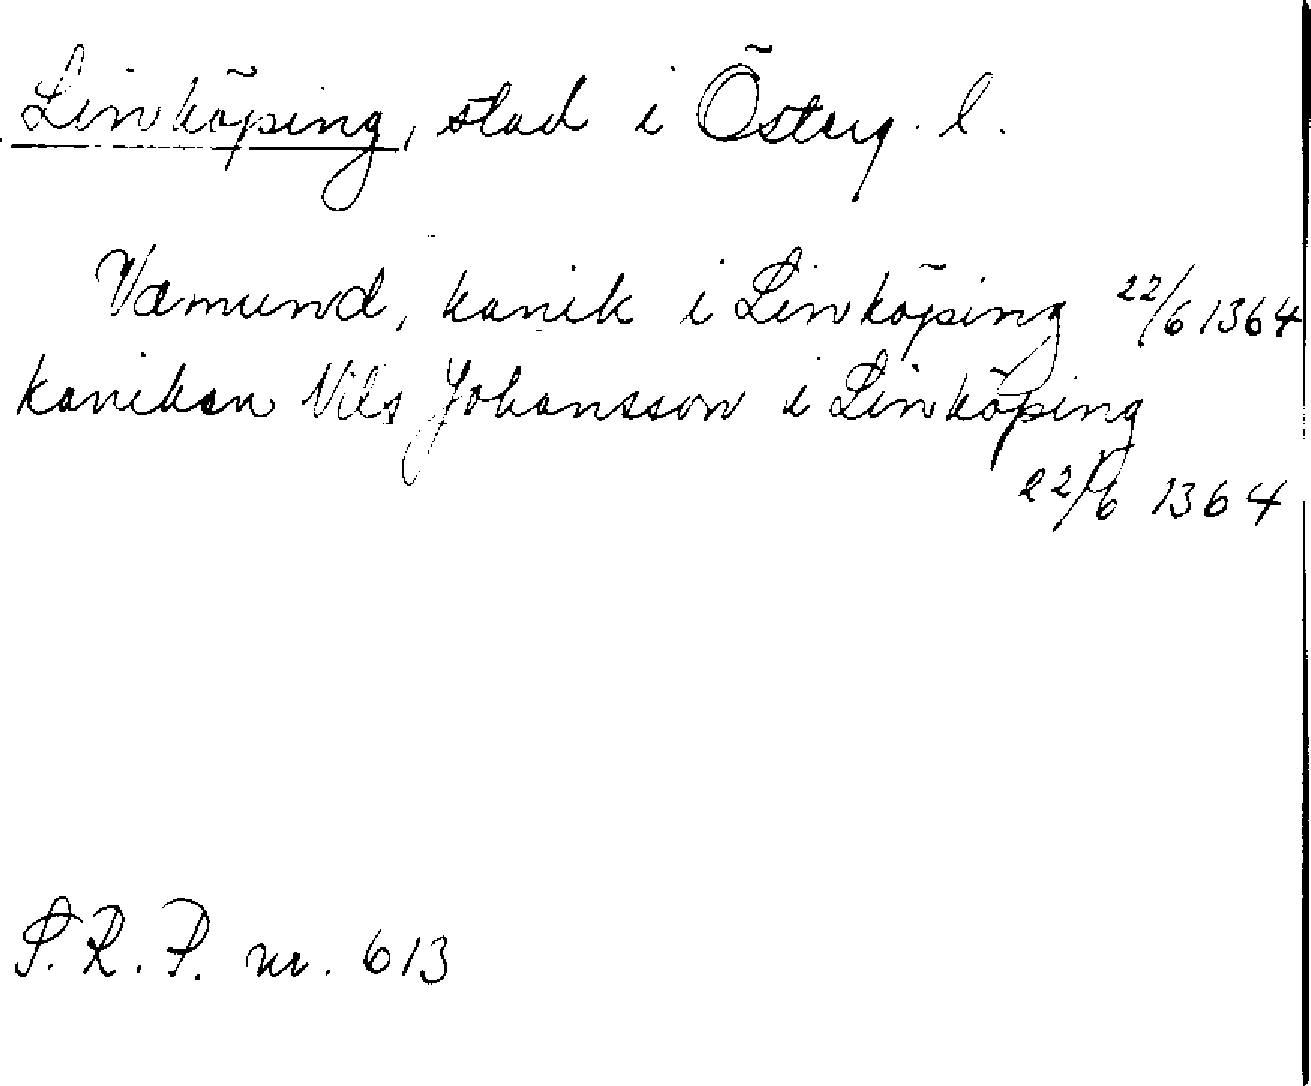 Linköping, stad i Österg. l.
Vamund, kanik i Linköping 22/6 1364
kaniken Nils Johansson i Linköping
22/6 1364
S.R.P. nr. 613